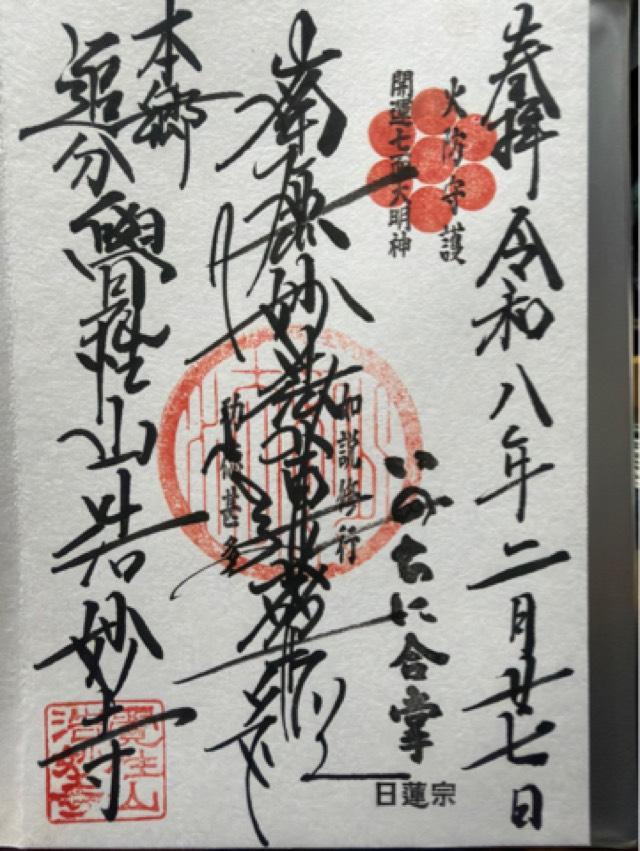 奉拝 令和八年二月廿七日
火防守護
開運七面大明神
いのちに合掌
日蓮宗
如説修行
南無妙法蓮華経
功德甚多
本郷
追分 覺性山 浩妙寺